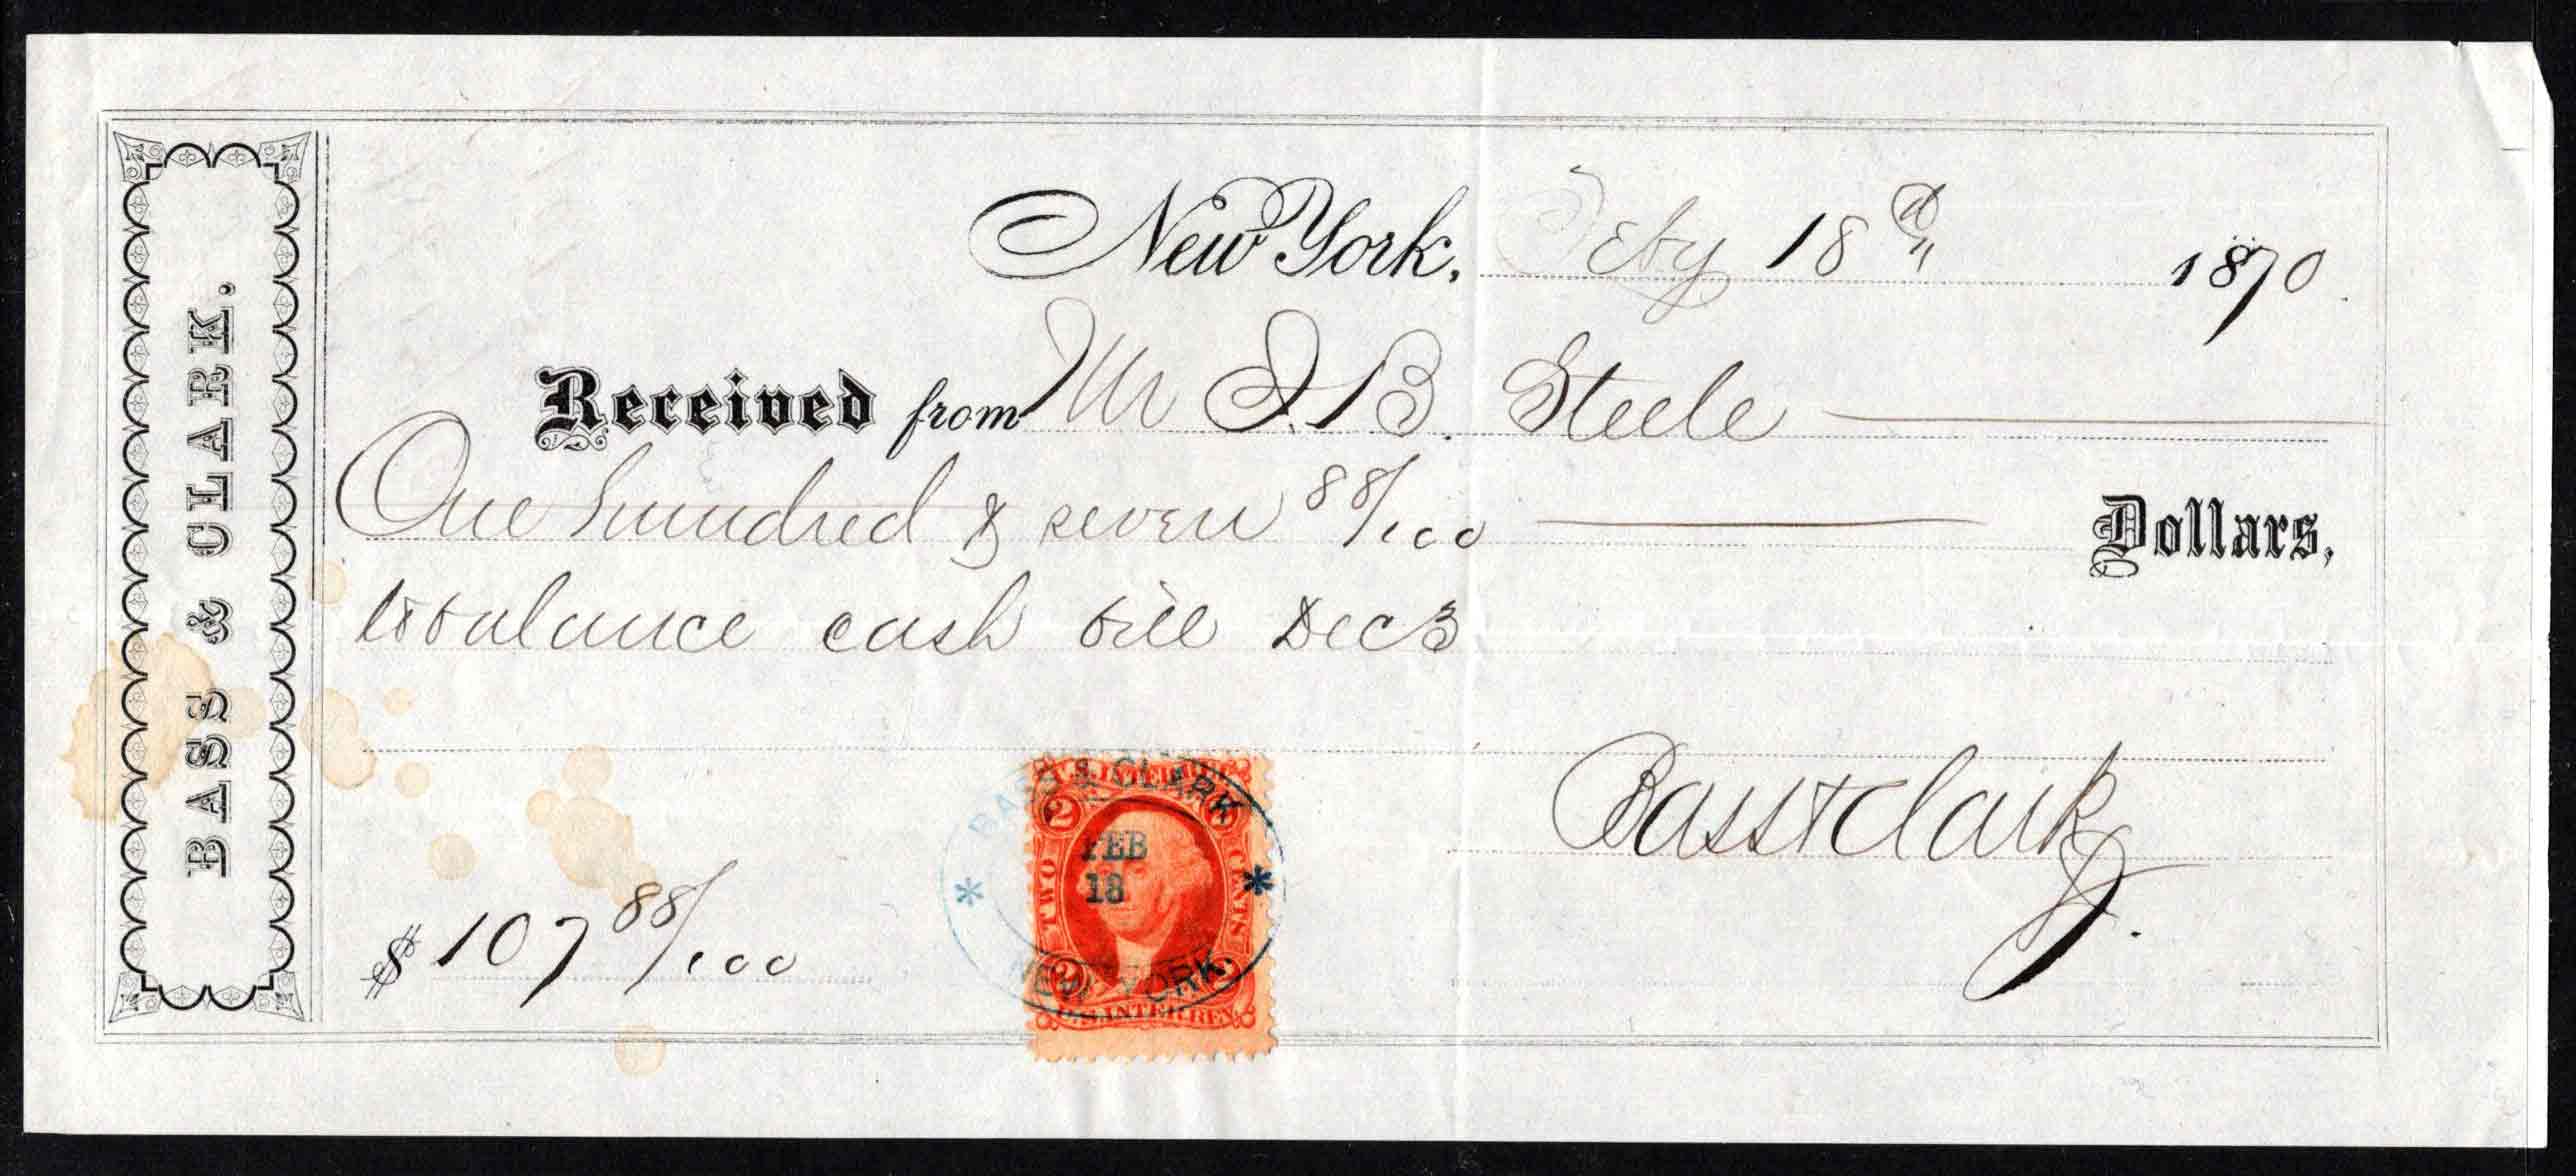 BASS & CLARK.
New York, Feby 18th 1870
Received from Mr I. B. Steele
One hundred & seven 88/100 Dollars,
to balance cash bill Dec 3
Bass & Clark
$107 88/100
U.S. INTER. REV.
2 2
TWO CENTS
2 2
U.S. INTER. REV.
BASS & CLARK
FEB
18
* *
NEW YORK.